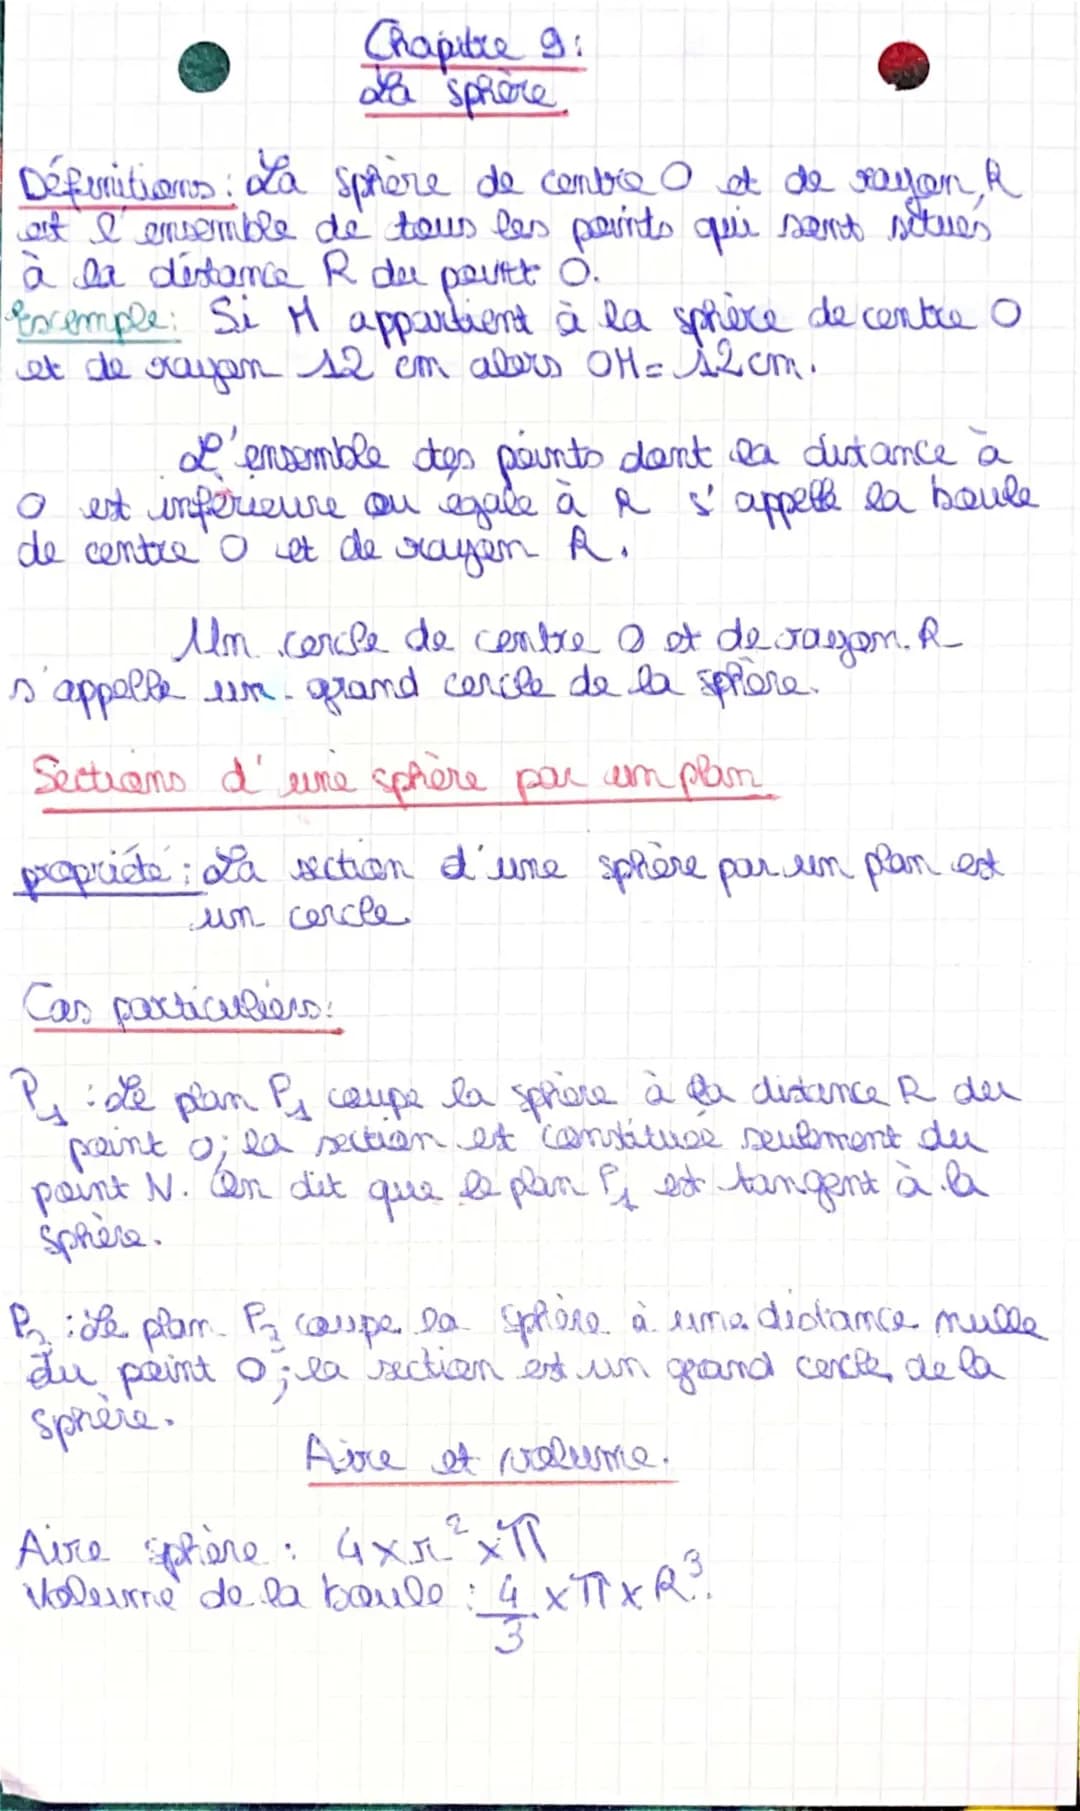 Chapitre 9:
La sphère
Définitions: La sphère de centre O et de rayon R
est l'ensemble de tous les points qui sont situés
à la distance R du point O.
Exemple: Si M appartient à la sphère de centre O
et de rayon 12 cm alors OM = 12 cm.
L'ensemble des points dont la distance à
O est inférieure ou égale à R s'appelle la boule
de centre O et de rayon R.
Un cercle de centre O et de rayon R
s'appelle un grand cercle de la sphère.
Sections d'une sphère par un plan
propriété: La section d'une sphère par un plan est
un cercle
Cas particuliers:
P₁ : Le plan P₁ coupe la sphère à la distance R du
point O; la section est constituée seulement du
point N. On dit que le plan P₁ est tangent à la
sphère.
P₂ : Le plan P₂ coupe la sphère à une distance nulle
du point O; la section est un grand cercle de la
sphère.
Aire et volume.
Aire sphère : 4×r²×π
Volume de la boule : 4/3 ×π×R³.